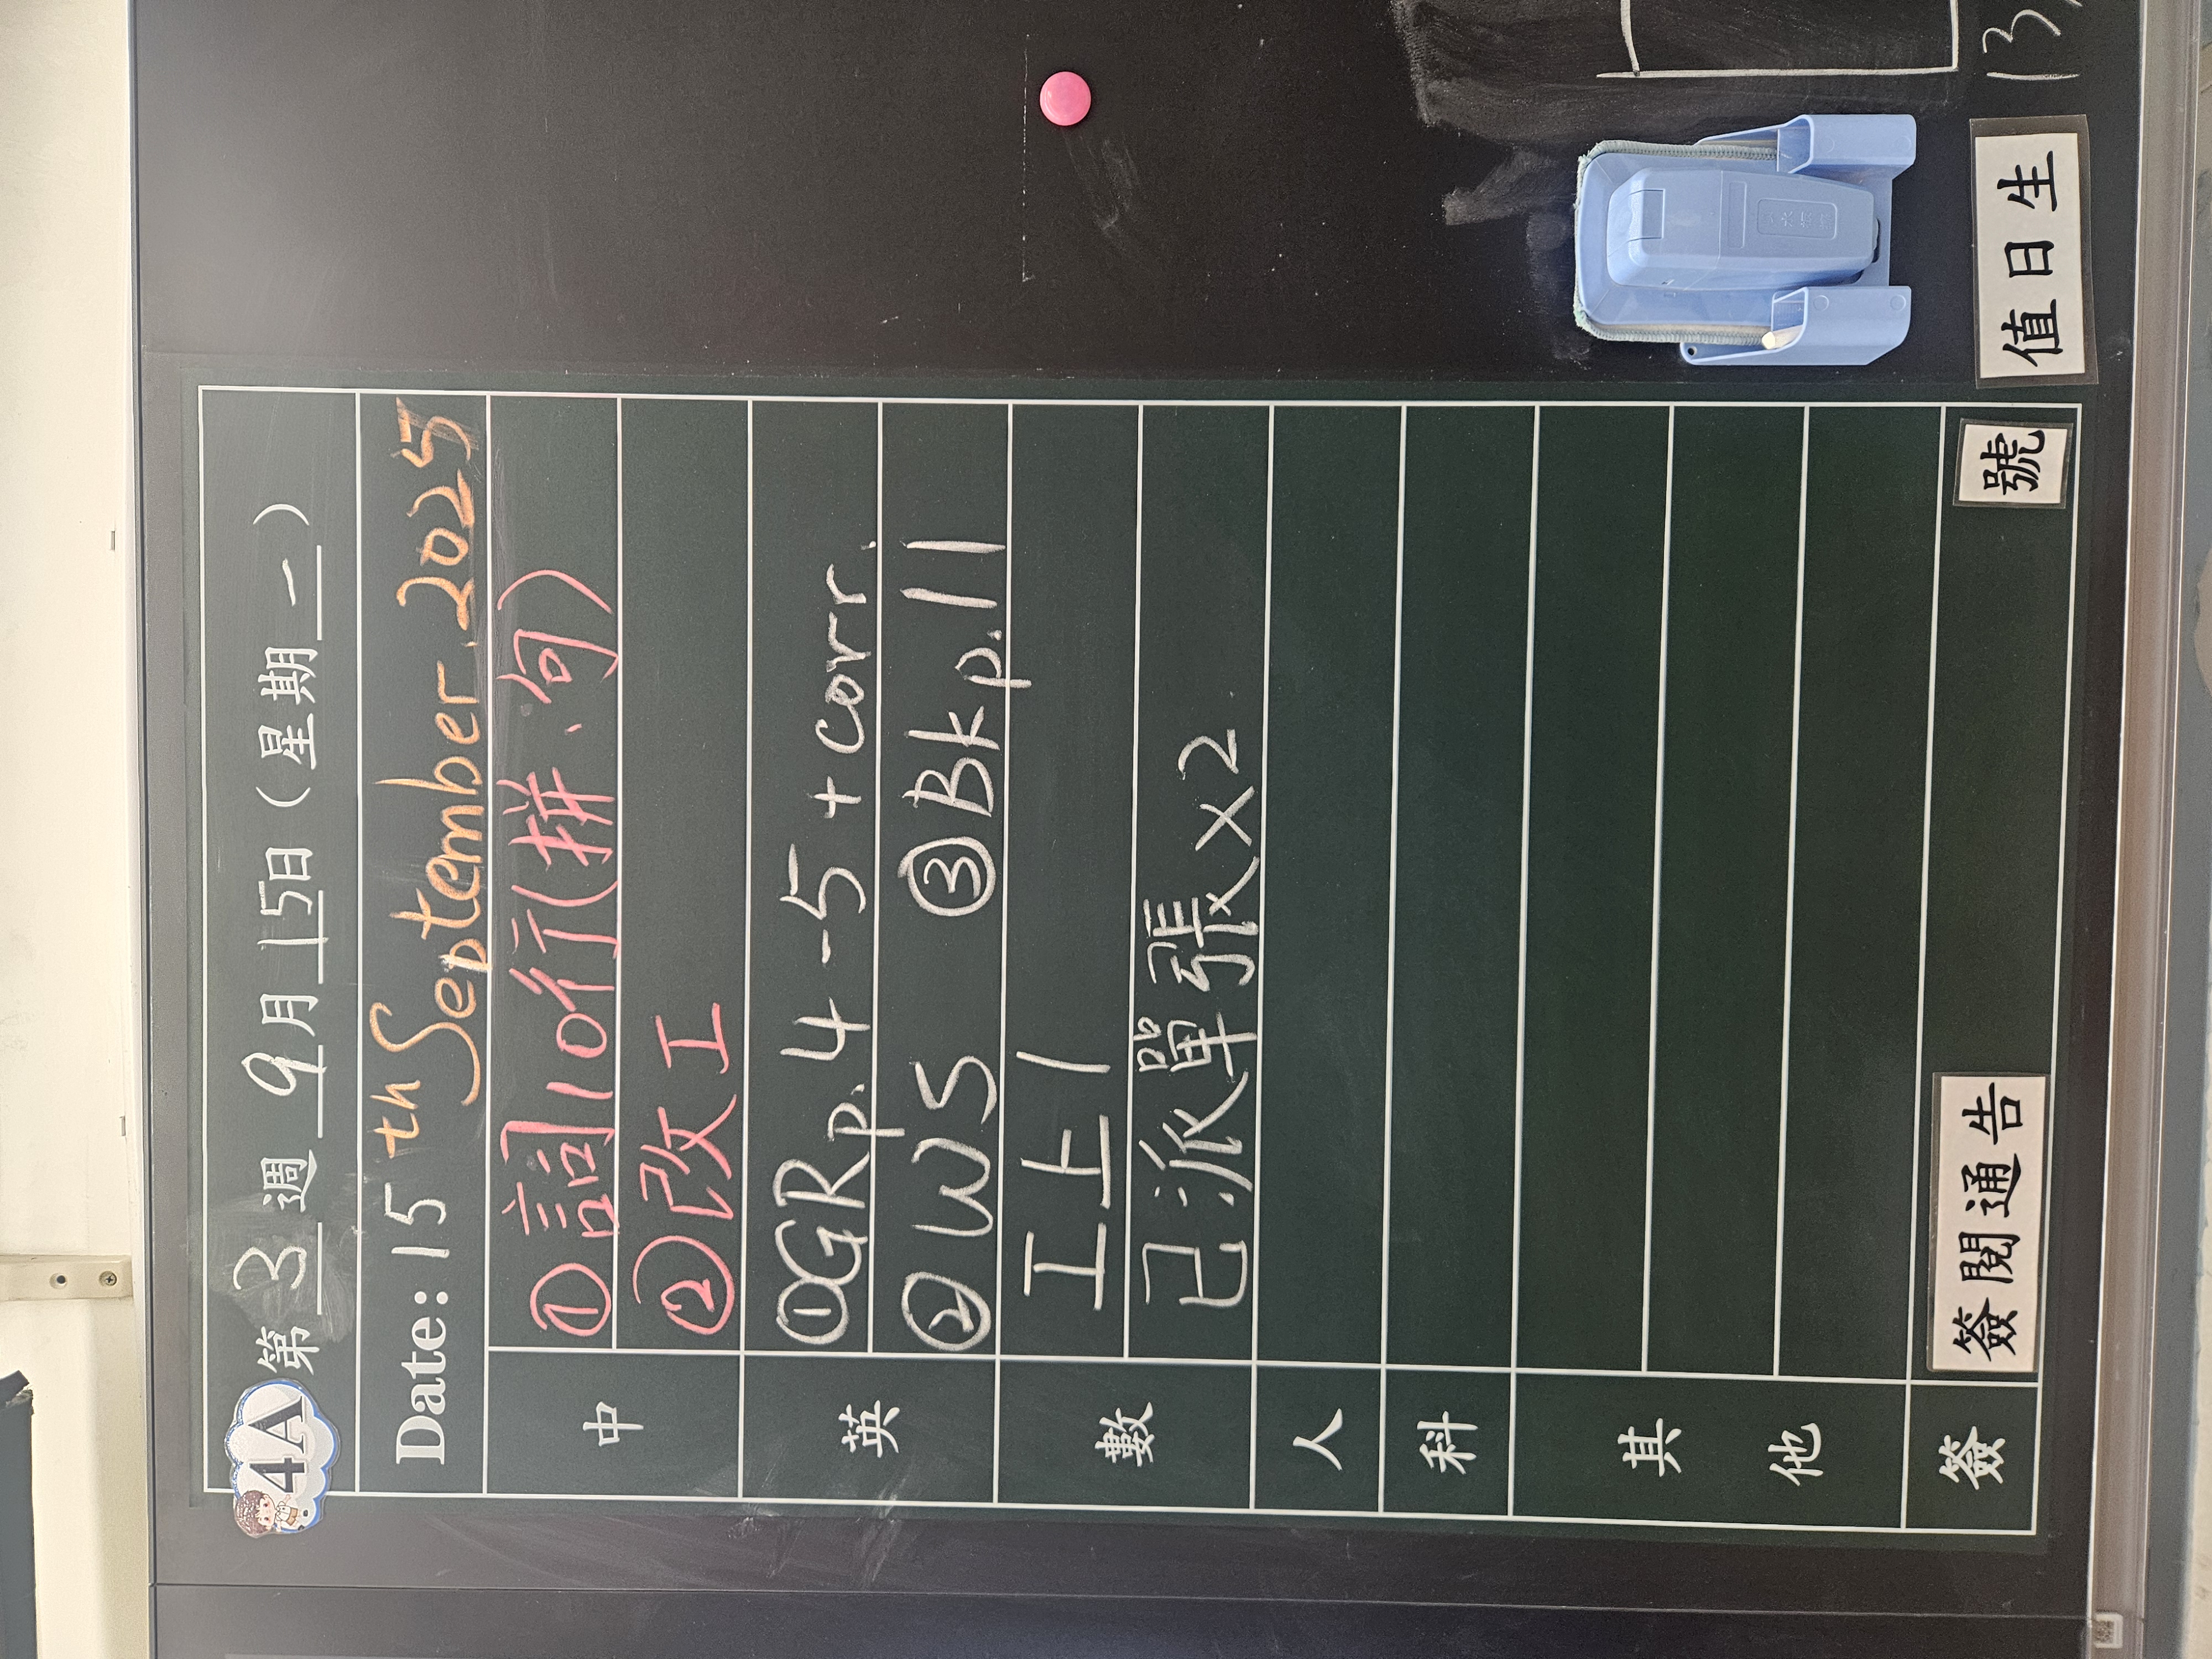 4A 第 3 週 9月 15日 (星期 一 )
Date: 15 th September. 2025
中 ① 詞10行(拼、句)
② 改工
英 ①GRp.4-5 + corr.
② WS ③Bkp.11
數 工上1
已派單張x2
人
科
其他
簽 簽閱通告 號
值日生 13,